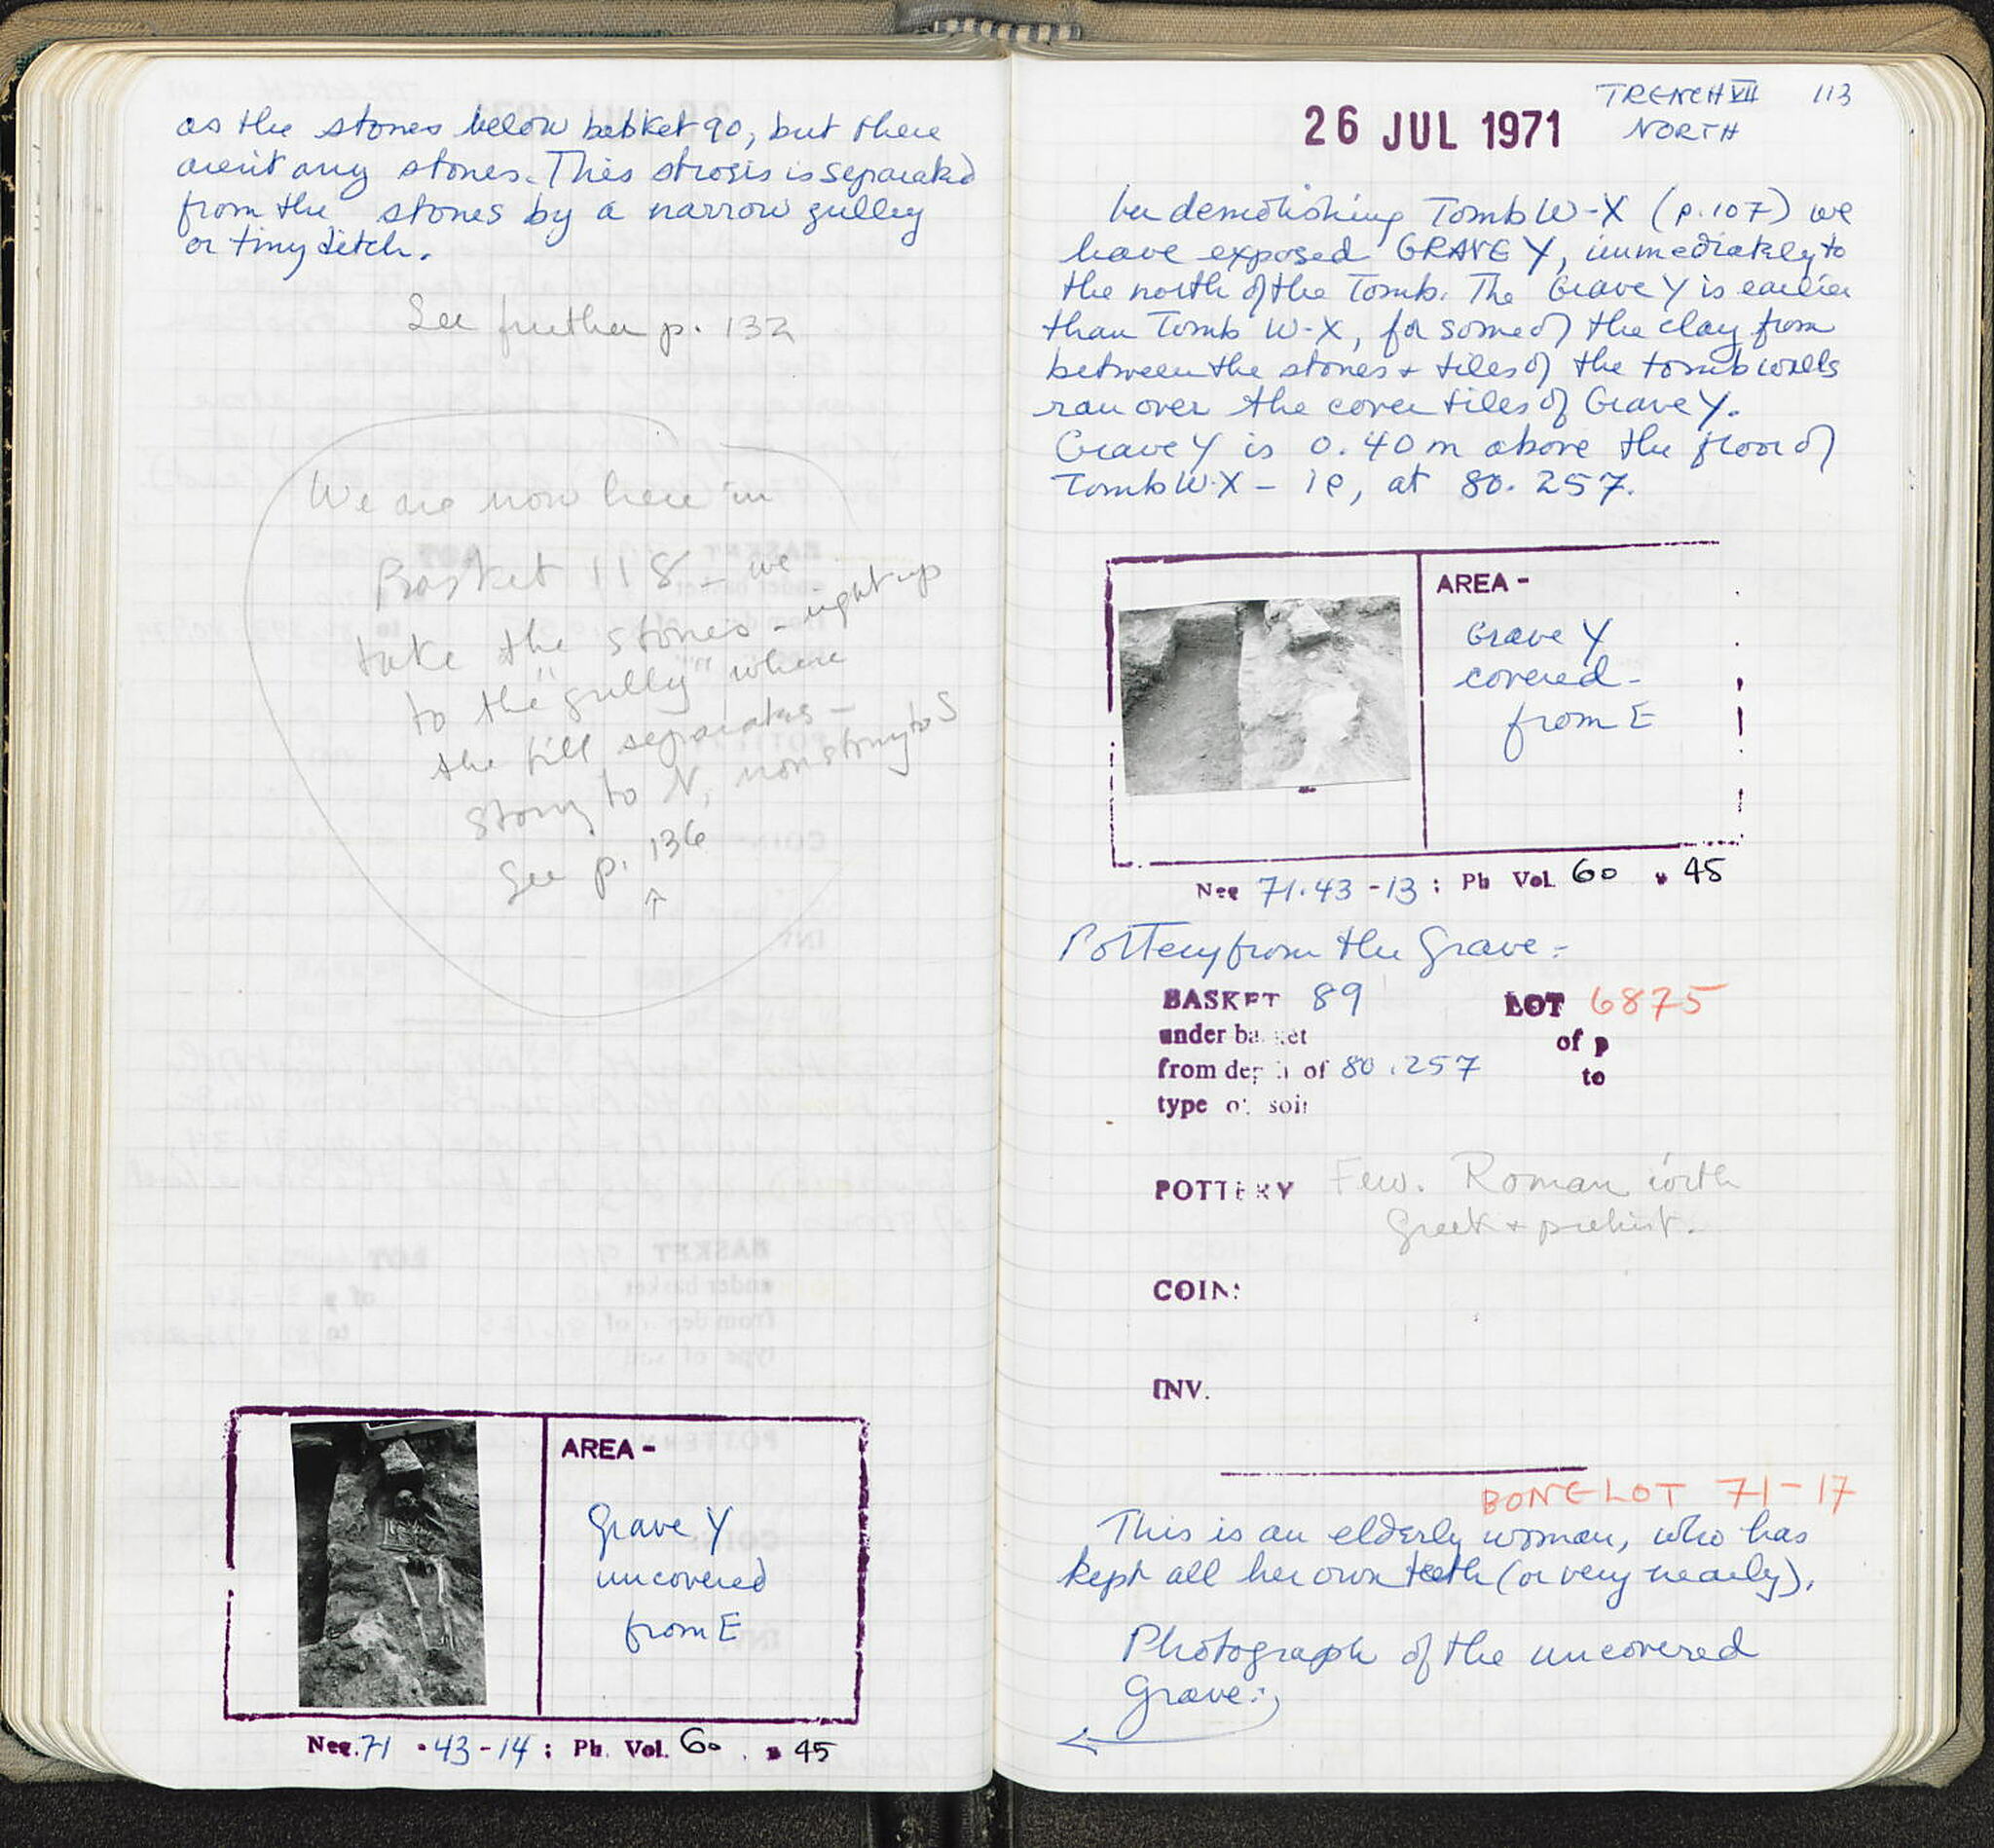 as the stones below basket 90, but there
aren't any stones. This strosis is separated
from the stones by a narrow gulley
or tiny ditch.
See further p. 132
We are now here in
Basket 118 - we
take the stones - right up
to the "gulley" where
the fill separates -
stony to N, non stony to S
See p. 136
↑
AREA -
Grave Y
uncovered
from E
Neg. 71 · 43 - 14 ; Ph. Vol. 60 . p 45
TRENCH VII 113
NORTH
26 JUL 1971
In demolishing Tomb W-X (p. 107) we
have exposed GRAVE Y, immediately to
the north of the Tomb. The Grave Y is earlier
than Tomb W-X, for some of the clay from
between the stones + tiles of the tomb walls
ran over the cover tiles of Grave Y.
Grave Y is 0.40 m above the floor of
Tomb W-X - ie, at 80.257.
AREA -
Grave Y
covered -
from E
Neg 71.43 - 13 ; Ph Vol. 60 p 45
Pottery from the Grave :
BASKET 89 LOT 6875
under basket of p
from depth of 80.257 to
type of soil
POTTERY Few. Roman with
Greek + prehist.
COIN:
INV.
BONE LOT 71-17
This is an elderly woman, who has
kept all her own teeth (or very nearly).
Photograph of the uncovered
Grave:
←